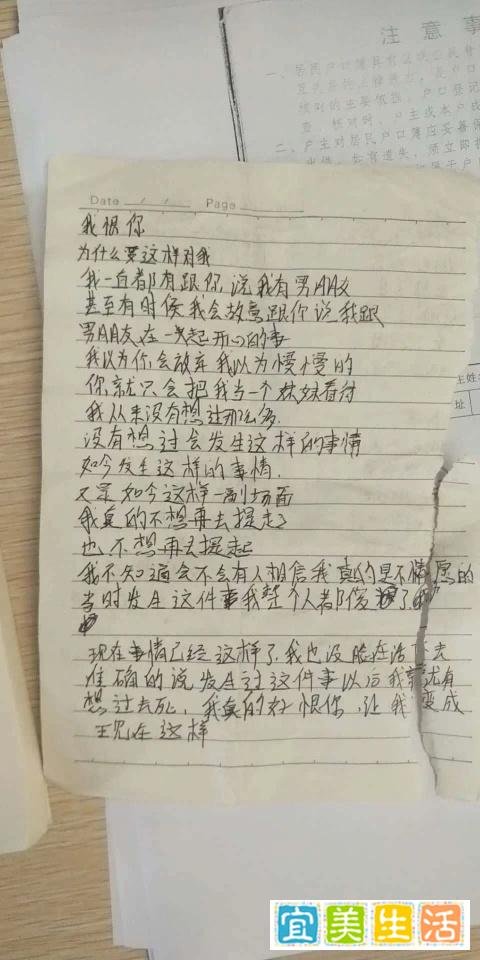 注意事
一、居民户口簿具有证明公民身
主要依据，户口登记
户主或本户成
二、户主对居民户口簿应妥善保
如有遗失，须立即报
Date / / Page
我恨你
为什么要这样对我
我一直都有跟你说我有男朋友
甚至有时候我会故意跟你说我跟
男朋友在一起开心的事
我以为你会放弃我以为慢慢的
你就只会把我当一个妹妹看待
我从来没有想过那么多
没有想过会发生这样的事情
如今发生这样的事情.
又是如今这样一副场面
我真的不想再去提起了
也不想再去提起
我不知道会不会有人相信我真的是不情愿的
当时发生这件事我整个人都傻了
现在事情已经这样了我也没脸在活下去
准确的说发生过这件事以后我就有
想过去死，我真的好恨你，让我变成
现在这样
主姓
址
宜美生活